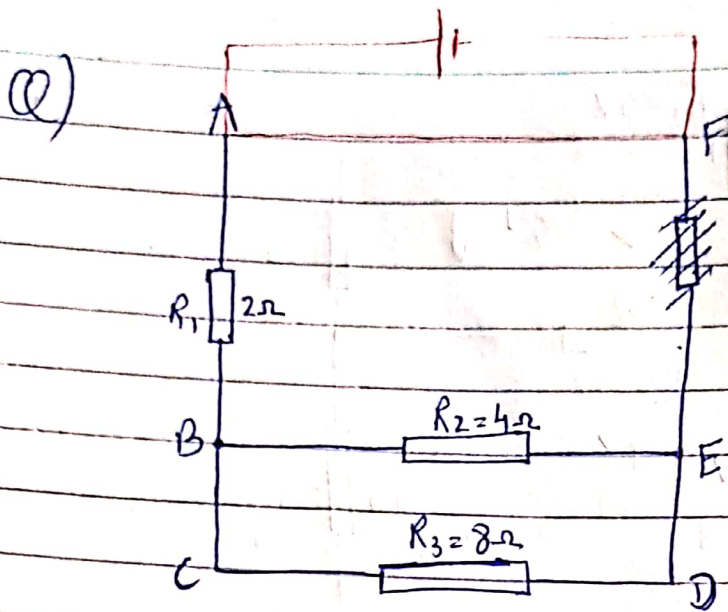 Q)
A
F
R₁ 2Ω
R₂ = 4Ω
B
E
R₃ = 8Ω
C
D